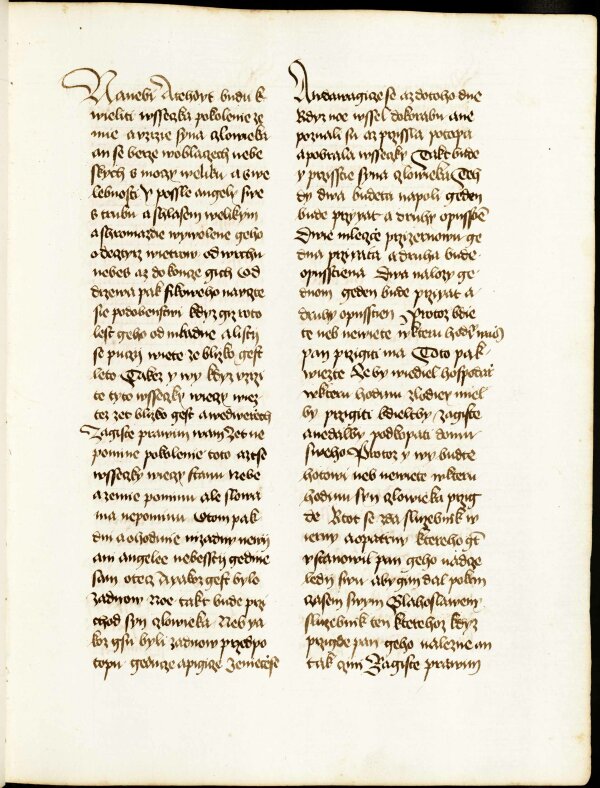 Nanebi Atehdyt budu k
wieliti wsseczka pokolenie ze
mie a vzrzie syna czlowieka
an se berze woblaczech nebe
skych s moczy weliku a swe
lebnosti Y possle angely swe
s trubu a hlasem welikym
a shromazdie wywolene geho
o dcztyrz wietrow od wrchu
nebes az do koncze gich Od
drzewa pak fikoweho navczte
sie podobenstwi kdyz giz roto
lest geho od mladne a listij
se puczij wiete ze blizko gest
leto Takez y wy kdyz vzrzi
te tyto wsseczky wieczy wiez
tez zet blizko gest a wedwerzech
Zagiste prawim wam zet ne
pomine pokolenie toto azt se
wsseczky wieczy stanu Nebe
a zemie pominu ale slowa
ma nepominu O tom pak
dni a o hodinie nizadny newij
ani angelee nebesstij gedine
sam otecz A yakoz gest bylo
zadnow Noe takt bude przi
chod syn czlowieka Neb ya
koz gsu byli zadnow przedpo
topu geducze a pigicze Zeniecze se
A wdawagicze se az do toho dne
kdyz noe wssel do korabu a ne
poznali su az przissla potopa
a pobrala wsseczky Takt bude
y przisstie syna czlowieka Teh
dy dwa budeta na poli geden
bude przigat a druhy opusstien
Dwie mlegicze przi zernowu ge
dna przigata a druha bude
opusstiena Dwa na lozy ge
dnom geden bude przigat a
druhy opusstien Protoz bdie
te neb newiete w kteru hodinu
pan przigiti ma Toto pak
wiezte Ze by wiediel hospodarz
w kteru hodinu zlodiey miel
by przigiti bdielby zagiste
a nedalby podkopati domu
sweho Protoz y wy budte
hotowi neb newiete w kteru
hodinu syn czlowieka przig
de Ktot se zda sluzebnik w
ierny a opatrny ktereho gt
vstanowil pan geho nad cze
ledij swu aby gim dal pokrm
czasem swym Blahoslaweny
sluzebnik ten kterehoz kdyz
przigde pan geho nalezne an
tak czini Zagiste prawim